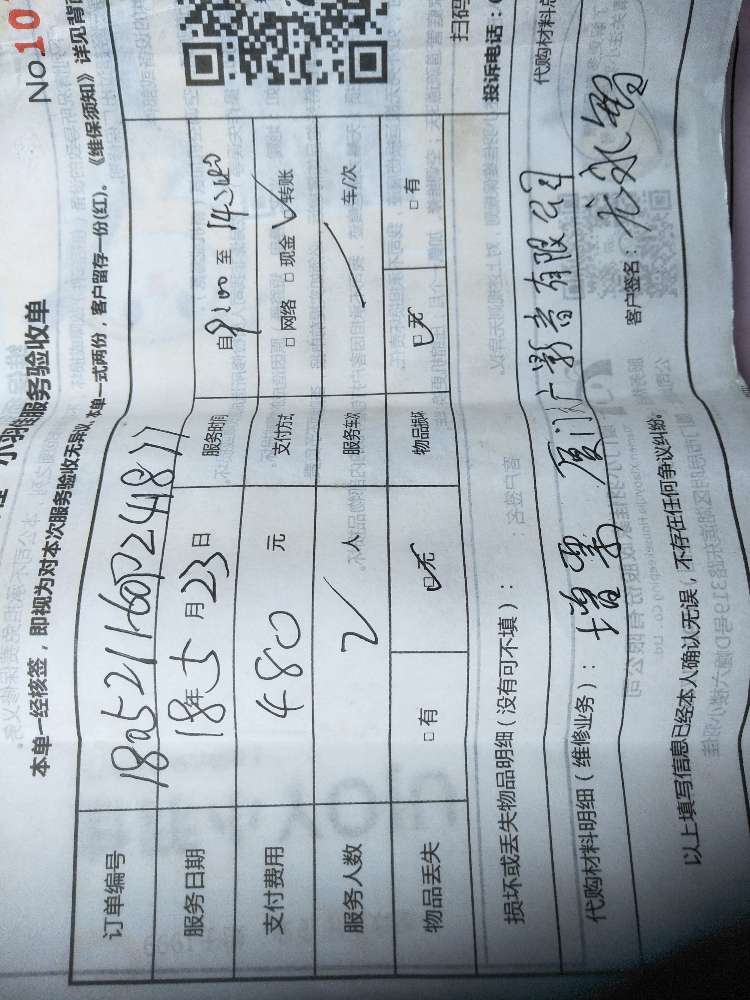 No.10
服务验收单
本单一经核签，即视为对本次服务验收无异议，本单一式两份，客户留存一份(红)。《维保须知》详见背面
订单编号
服务日期 18年5月23日 服务时间 自9:00至14:00
支付费用 480元 支付方式 □网络 □现金 ☑转账
服务人数 2人 服务车次 / 车/次
物品丢失 □有 ☑无 物品损坏 ☑无 □有
损坏或丢失物品明细（没有可不填）：
代购材料明细（维修业务）：
增票 厦门广影音有限公司
代购材料总
以上填写信息已经本人确认无误，不存在任何争议纠纷。
客户签名：
扫码
投诉电话：